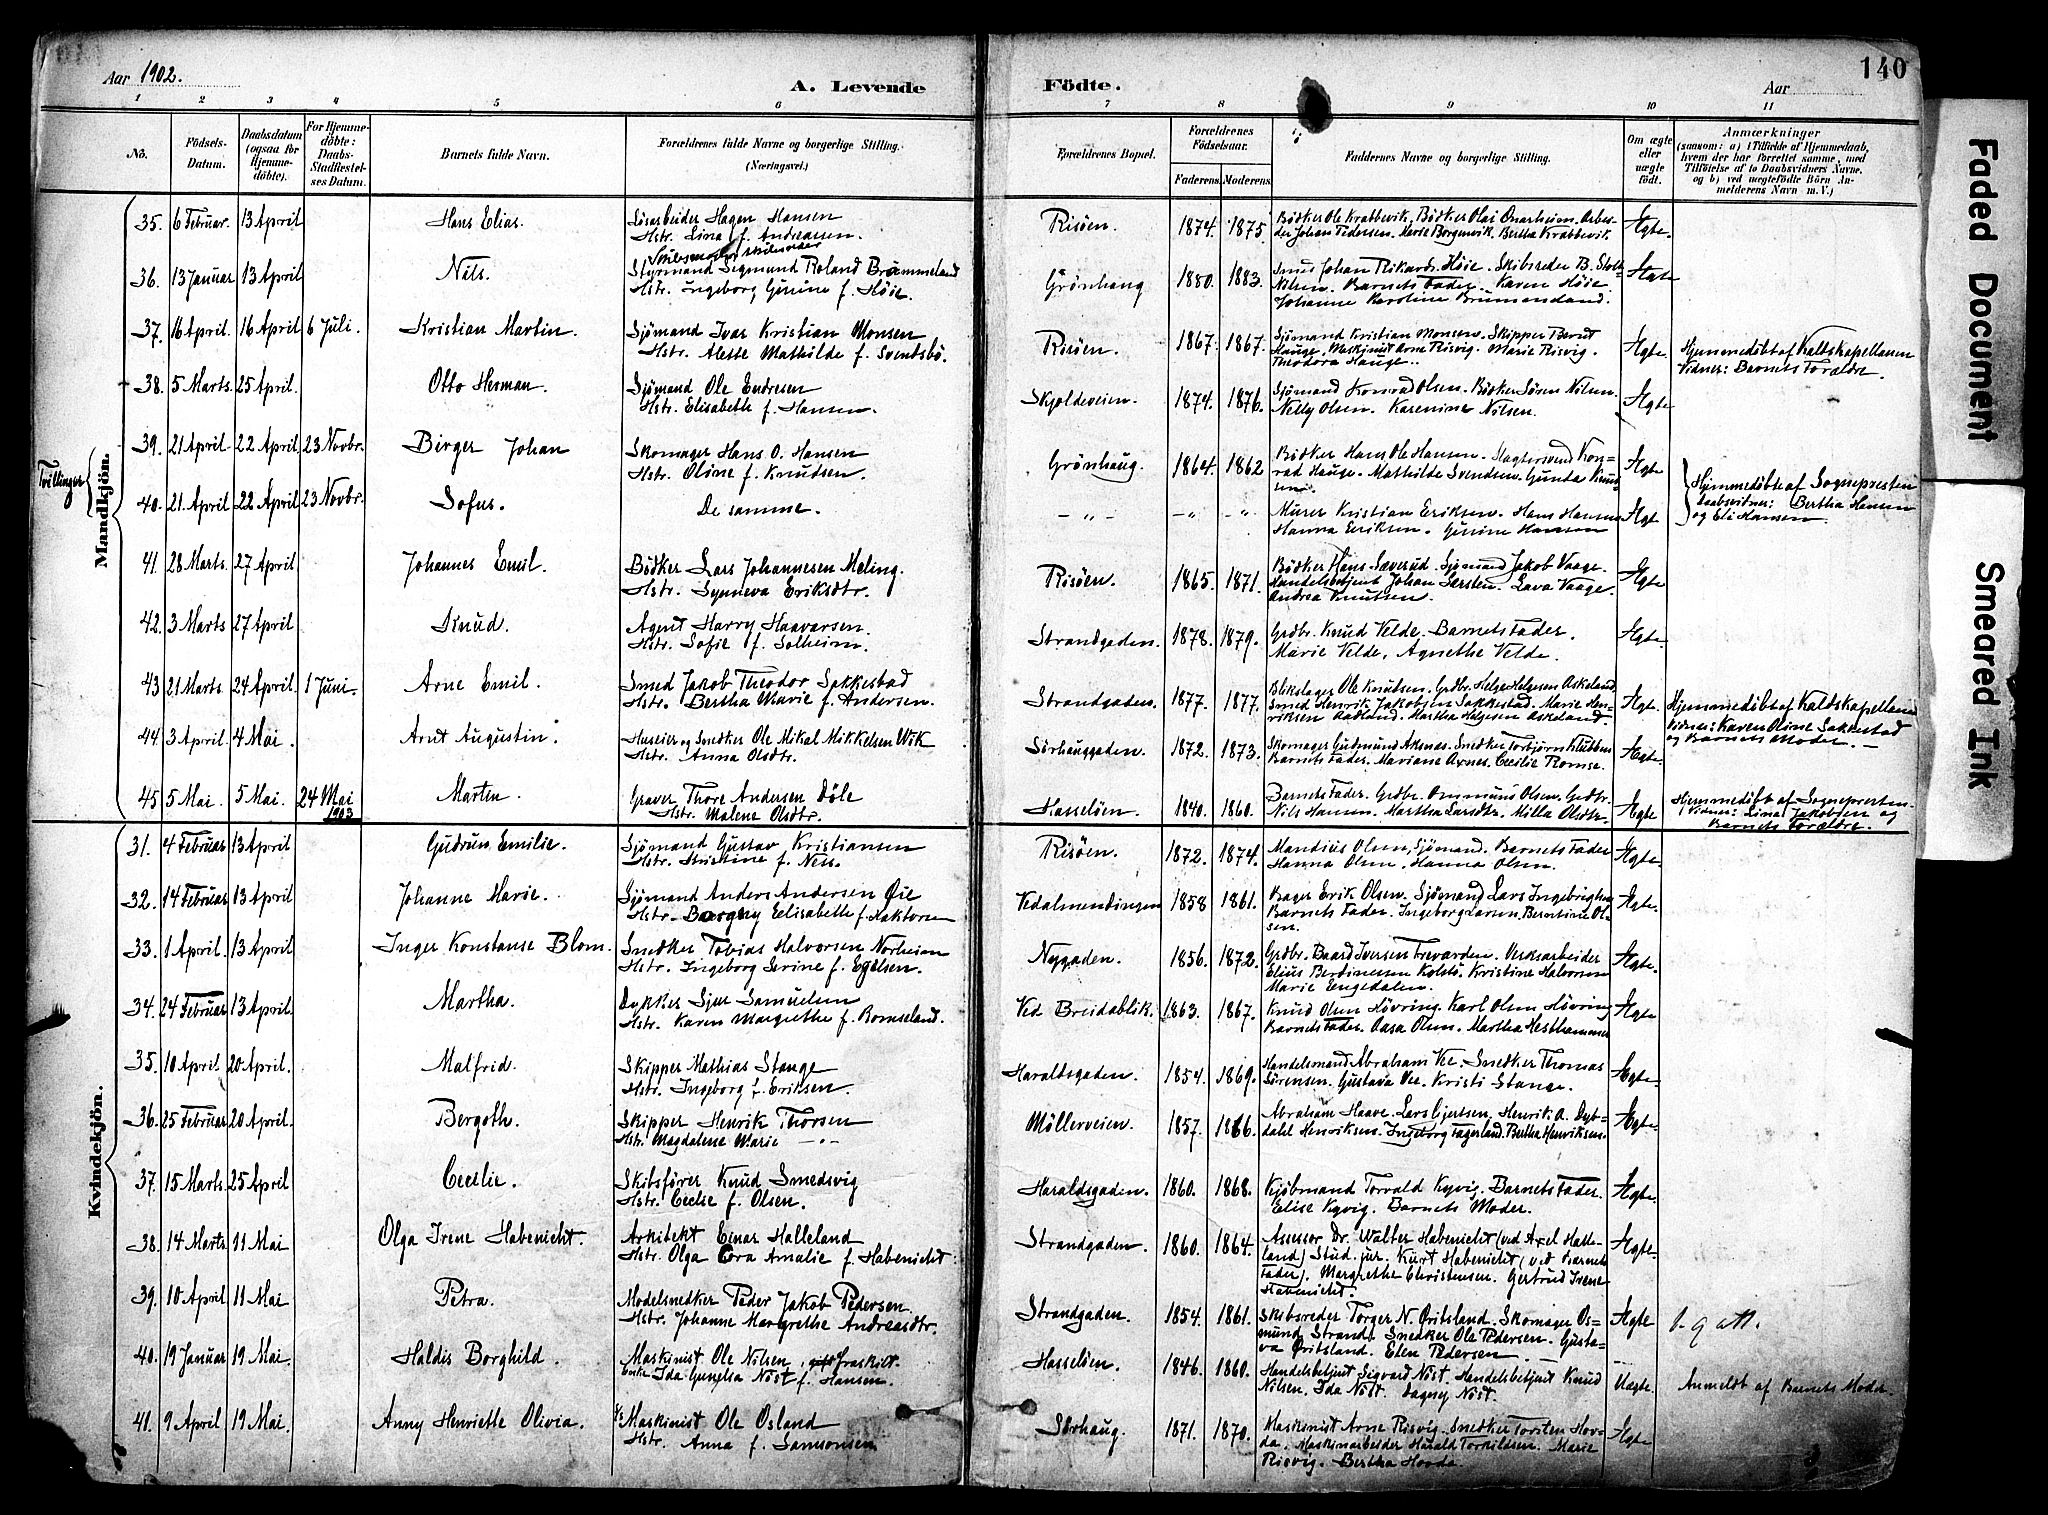 Aar 1902.
A. Levende Födte.
Aar
140
1 2 3 4 5 6 7 8 9 10 11
No.
Födsels-Datum.
Daabsdatum (ogsaa for Hjemme-döbte).
For Hjemme-döbte: Daabs-Stadfæstel-ses Datum.
Barnets fulde Navn.
Forældrenes fulde Navne og borgerlige Stilling. (Næringsvei.)
Forældrenes Bopæl.
Forældrenes Födselsaar.
Faderens. Moderens.
Faddernes Navne og borgerlige Stilling.
Om ægte eller uægte födt.
Anmærkninger (saasom: a) i Tilfælde af Hjemmedaab, hvem der har forrettet samme, med Tilföielse af to Daabsvidners Navne, og b) ved uægtefödte Börn Anmelderens Navn m. V.)
Mandkjön.
Tvillinger
35. 6 Februar. 13 April Hans Elias. Hagen Hansen
Hstr. Lina f. Andreassen. Risöen. 1874. 1875. Bödker Ole Krabbevik, Bödker Olai Onarheim. Arbei-
der Johan Pedersen. Marie Borgenvik. Bertha Krabbevik. Ægte.
36. 13 Januar 13 April Nils. Styrmand Sigmund Roland Brummeland
Hstr. Ingeborg Gurine f. Höie. Grönhaug 1880. 1883. Smed Johan Rikard Höie. Skibsreder B. Stolt-
Nilsen. Barnets Fader. Karen Höie.
Johanne Karoline Brummeland. Ægte
37. 16 April. 16 April 6 Juli. Kristian Martin. Sjömand Ivar Kristian Monsen
Hstr. Alette Mathilde f. Svendsbö. Risöen. 1867. 1867. Sjömand Kristian Monsen. Skipper Berut
Hauge. Maskinist Arne Risvig. Marie Risvig.
Theodora Hauge. Ægte. Hjemmedöbt af Kaldskapellanen
Vidner: Barnets Forældre.
38. 5 Marts. 25 April. Otto Herman. Sjömand Ole Endresen
Hstr. Elisabeth f. Hansen. Skjoldeveien. 1874. 1876. Sjömand Konrad Olsen. Bödker Sören Nilsen.
Nelly Olsen. Karenine Nilsen. Ægte
39. 21 April. 22 April. 23 Novbr. Birger Johan Skomager Hans O. Hansen
Hstr. Oline f. Knudsen. Grönhaug. 1864. 1862 Bödker Hans Ole Hansen. Slagtersvend Kon-
rad Hauge. Mathilde Svendsen. Gunda Knud-
sen. Ægte
40. 21 April. 22 April 23 Novbr. Sofus. De samme. - „ - - „ - „ Murer Kristian Eriksen. Hans Hansen
Hanna Eriksen. Gurine Hansen Ægte Hjemmedöbte af Sognepresten
Daabsvidner: Bertha Hansen
og Eli Hansen.
41. 28 Marts. 27 April Johannes Emil. Bödker Lars Johannesen Meling.
Hstr. Synneva Eriksdtr. Risöen. 1865. 1871. Bödker Hans Sæverud. Sjömand Jakob Vaage.
Handelsbetjent Johan Sersten. Lava Vaage.
Andrea Knutsen. Ægte
42. 3 Marts 27 April Knud. Agent Harry Haavarsen.
Hstr. Sofie f. Solheim. Strandgaden. 1878. 1879. Grdbr. Knud Velde. Barnets Fader.
Marie Velde. Agnethe Velde. Ægte
43 21 Marts. 24 April. 1 Juni. Arne Emil. Smed Jakob Theodor Sakkestad
Hstr. Bertha Marie f. Andersen. Strandgaden. 1877. 1877. Blikslager Ole Knutsen. Grdbr. Helge Helgesen Askeland
Smed Henrik Jakobsen Sakkestad. Marie Hen-
riksen Aadland. Martha Helgesen Askeland. Ægte. Hjemmedöbt af Kaldskapellanen
Vidner: Karen Oline Sakkestad
og Barnets Moder.
44. 3 April. 4 Mai. Arnt Augustin. Huseier og Snedker Ole Mikal Mikkelsen Wik
Hstr. Anna Olsdtr. Sörhauggaden. 1872. 1873. Skomager Gudmund Aksnes. Snedker Torbjörn Klubben
Barnets Fader. Mariane Axnes. Cecilie Romse. Ægte.
45 5 Mai. 5 Mai. 24 Mai 1903 Marten. Graver Thore Andersen Döle
Hstr. Malene Olsdtr. Hasselöen. 1840. 1860. Barnets Fader. Grdbr. Ommund Olsen. Grdbr.
Nils Hansen. Martha Larsdtr. Milla Olsdtr. Ægte Hjemmedöbt af Sognepresten
Vidner: Lina Jakobsen og
Barnets Forældre.
Kvindekjön.
31. 4 Februar 13 April Gudrun Emilie. Sjömand Gustav Kristiansen
Hstr. Kristine f. Ness. Risöen. 1872. 1874. Mandius Olsen, Sjömand. Barnets Fader
Hanna Olsen. Hanna Olsen. Ægte.
32. 14 Februar 13 April Johanne Marie. Sjömand Anders Andersen Öie
Hstr. Borgny Elisabeth f. Hektoren Vedalmendingen 1858 1861. Bager Erik Olsen. Sjömand Lars Ingebrigtsen
Barnets Fader. Ingeborg Larsen. Berntine Ol-
sen. Ægte.
33. 1 April. 13 April Inger Konstanse Blom. Snedker Tobias Halvorsen Norheim
Hstr. Ingeborg Serine f. Egelsen. Nygaden. 1856. 1872. Grdbr. Baard Iversen Frevarden. Verksarbeider
Elius Berdinesen Kolstö. Kristine Halvorsen
Marie Engedalen. Ægte.
34. 24 Februar 13 April Martha. Dykker Sjur Samuelsen
Hstr. Karen Margrethe f. Romseland. Ved Breidablik. 1863. 1867. Knud Olsen Hövring. Karl Olsen Hövring
Barnets Fader. Aasa Olsen. Martha Hesthammer Ægte
35. 10 April 20 April. Malfrid. Skipper Mathias Stange
Hstr. Ingeborg f. Eriksen. Haraldsgaden. 1854. 1869. Handelsmand Abraham Vee. Snedker Thomas
Sörensen. Gustava Vee. Kristi Stange. Ægte.
36. 25 Februar 20 April Bergoth. Skipper Henrik Thorsen
Hstr. Magdalene Marie - „ - Möllerveien. 1857. 1866. Abraham Haave. Lars Gjertsen, Henrik A. Dyb-
dahl Henriksen. Ingeborg Fagerland. Bertha Henriksen. Ægte.
37. 15 Marts. 25 April Cecilie. Skibsförer Knud Smedsvig
Hstr. Cecilie f. Olsen. Haraldsgaden. 1860. 1868. Kjöbmand Torvald Kyvig. Barnets Fader.
Elise Kyvig. Barnets Moder. Ægte.
38. 14 Marts 11 Mai Olga Irene Habenicht. Arkitekt Einar Halleland
Hstr. Olga Cora Amalie f. Habenicht. Strandgaden. 1860. 1864. Assessor Dr. Walter Habenicht (ved Axel Halle-
land) Stud. jur. Kurt Habenicht (ved Barnets
Fader). Margrethe Christensen. Gertrud Irene
Habenicht. Ægte.
39. 10 April 11 Mai Petra. Modelsnedker Peder Jakob Pedersen.
Hstr. Johanne Margrethe Andreasdtr. Strandgaden. 1854. 1861. Skibsreder Torger N. Öritsland. Skomager Os-
mund Strand. Snedker Ole Pedersen. Gusta-
va Öritsland. Elen Pedersen. Ægte
40. 19 Januar 19 Mai. Haldis Borghild. Maskinist Ole Nilsen, fraskilt.
Enke Ida Gunelia Nist f. Hansen. Hasselöen. 1846. 1860. Handelsbetjent Sigvard Nist. Handelsbetjent Knud
Nilsen. Ida Nist. Dagny Nist. Uægte. Anmeldt af Barnets Moder
41. 9 April 19 Mai. Anny Henriette Olivia. Maskinist Ole Osland
Hstr. Anna f. Samsonsen Sörhaug. 1871. 1870. Maskinist Arne Risvig. Snedker Torsten Hov-
da. Maskinarbeider Harald Torkildsen. Marie
Risvig. Bertha Hovda. Ægte
Faded Document
Smeared Ink